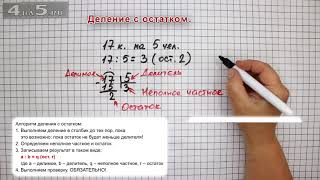 4 на 5.ру
Деление с остатком.
17 к. на 5 чел.
17 : 5 = 3 (ост. 2)
Делимое
Делитель
17 5
- 15 3
2
Неполное частное
Остаток
Алгоритм деления с остатком:
1. Выполняем деление в столбик до тех пор, пока
это возможно: пока остаток не будет меньше делителя!
2. Определяем неполное частное и остаток.
3. Записываем результат в таком виде:
a : b = q (ост. r)
Где a – делимое, b – делитель, q – неполное частное, r – остаток
4. Выполняем проверку. ОБЯЗАТЕЛЬНО!